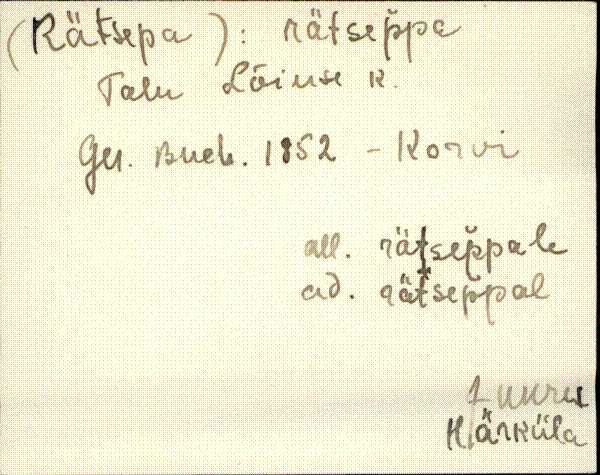 (Rätsepa): rätsep̆pa
Talu Lõiuse k.
Ger. Buch. 1852 - Korvi
all. rätsep̆pale
ad. rätsep̆pal
Härküla